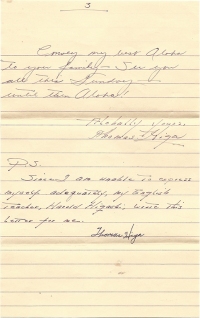 3
Convey my best Aloha
to your family — See you
all this Sunday —
until then Aloha!
Thomas Higa
P.S.
Since I am unable to express
myself adequately, my English
teacher, Harold Higashi, wrote this
letter for me.
Thomas Higa